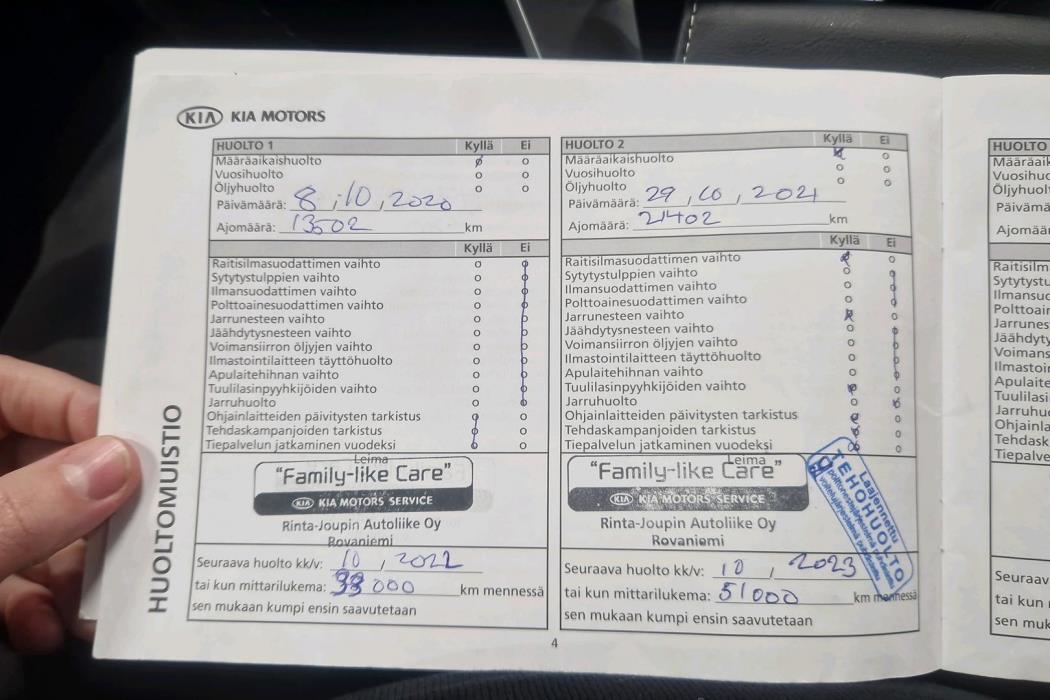 KIA KIA MOTORS
HUOLTO 1 Kyllä Ei
Määräaikaishuolto
Vuosihuolto
Öljyhuolto
Päivämäärä: 8.10,2020
Ajomäärä: 13502 km
Kyllä Ei
Raitisilmasuodattimen vaihto
Sytytystulppien vaihto
Ilmansuodattimen vaihto
Polttoainesuodattimen vaihto
Jarrunesteen vaihto
Jäähdytysnesteen vaihto
Voimansiirron öljyjen vaihto
Ilmastointilaitteen täyttöhuolto
Apulaitehihnan vaihto
Tuulilasinpyyhkijöiden vaihto
Jarruhuolto
Ohjainlaitteiden päivitysten tarkistus
Tehdaskampanjoiden tarkistus
Tiepalvelun jatkaminen vuodeksi
Leima
"Family-like Care"
KIA KIA MOTORS SERVICE
Rinta-Joupin Autoliike Oy
Rovaniemi
Seuraava huolto kk/v: 10, 2022
tai kun mittarilukema: 33000 km mennessä
sen mukaan kumpi ensin saavutetaan
HUOLTO 2 Kyllä Ei
Määräaikaishuolto
Vuosihuolto
Öljyhuolto
Päivämäärä: 29, 10, 2021
Ajomäärä: 21402 km
Kyllä Ei
Raitisilmasuodattimen vaihto
Sytytystulppien vaihto
Ilmansuodattimen vaihto
Polttoainesuodattimen vaihto
Jarrunesteen vaihto
Jäähdytysnesteen vaihto
Voimansiirron öljyjen vaihto
Ilmastointilaitteen täyttöhuolto
Apulaitehihnan vaihto
Tuulilasinpyyhkijöiden vaihto
Jarruhuolto
Ohjainlaitteiden päivitysten tarkistus
Tehdaskampanjoiden tarkistus
Tiepalvelun jatkaminen vuodeksi
Leima
"Family-like Care"
KIA KIA MOTORS SERVICE
Rinta-Joupin Autoliike Oy
Rovaniemi
Laajennettu
TEHOHUOLTO
Seuraava huolto kk/v: 10, 2023
tai kun mittarilukema: 51000 km mennessä
sen mukaan kumpi ensin saavutetaan
HUOLTOMUISTIO
4
HUOLTO
Määräaik
Vuosihuo
Öljyhuolt
Päivämä
Ajomäär
Raitisilm
Sytytystu
Ilmansuo
Polttoain
Jarrunes
Jäähdyty
Voimans
Ilmastoin
Apulaite
Tuulilasi
Jarruhuo
Ohjainla
Tehdask
Tiepalve
Seuraav
tai kun
sen muk